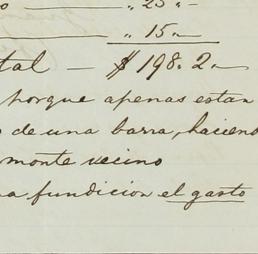 o —— „ 25 „ —
—— „ 15 „ —
tal — $ 198. 2. —
porque apenas estan
o de una barra, haciend
monte vecino
a fundicion el gasto